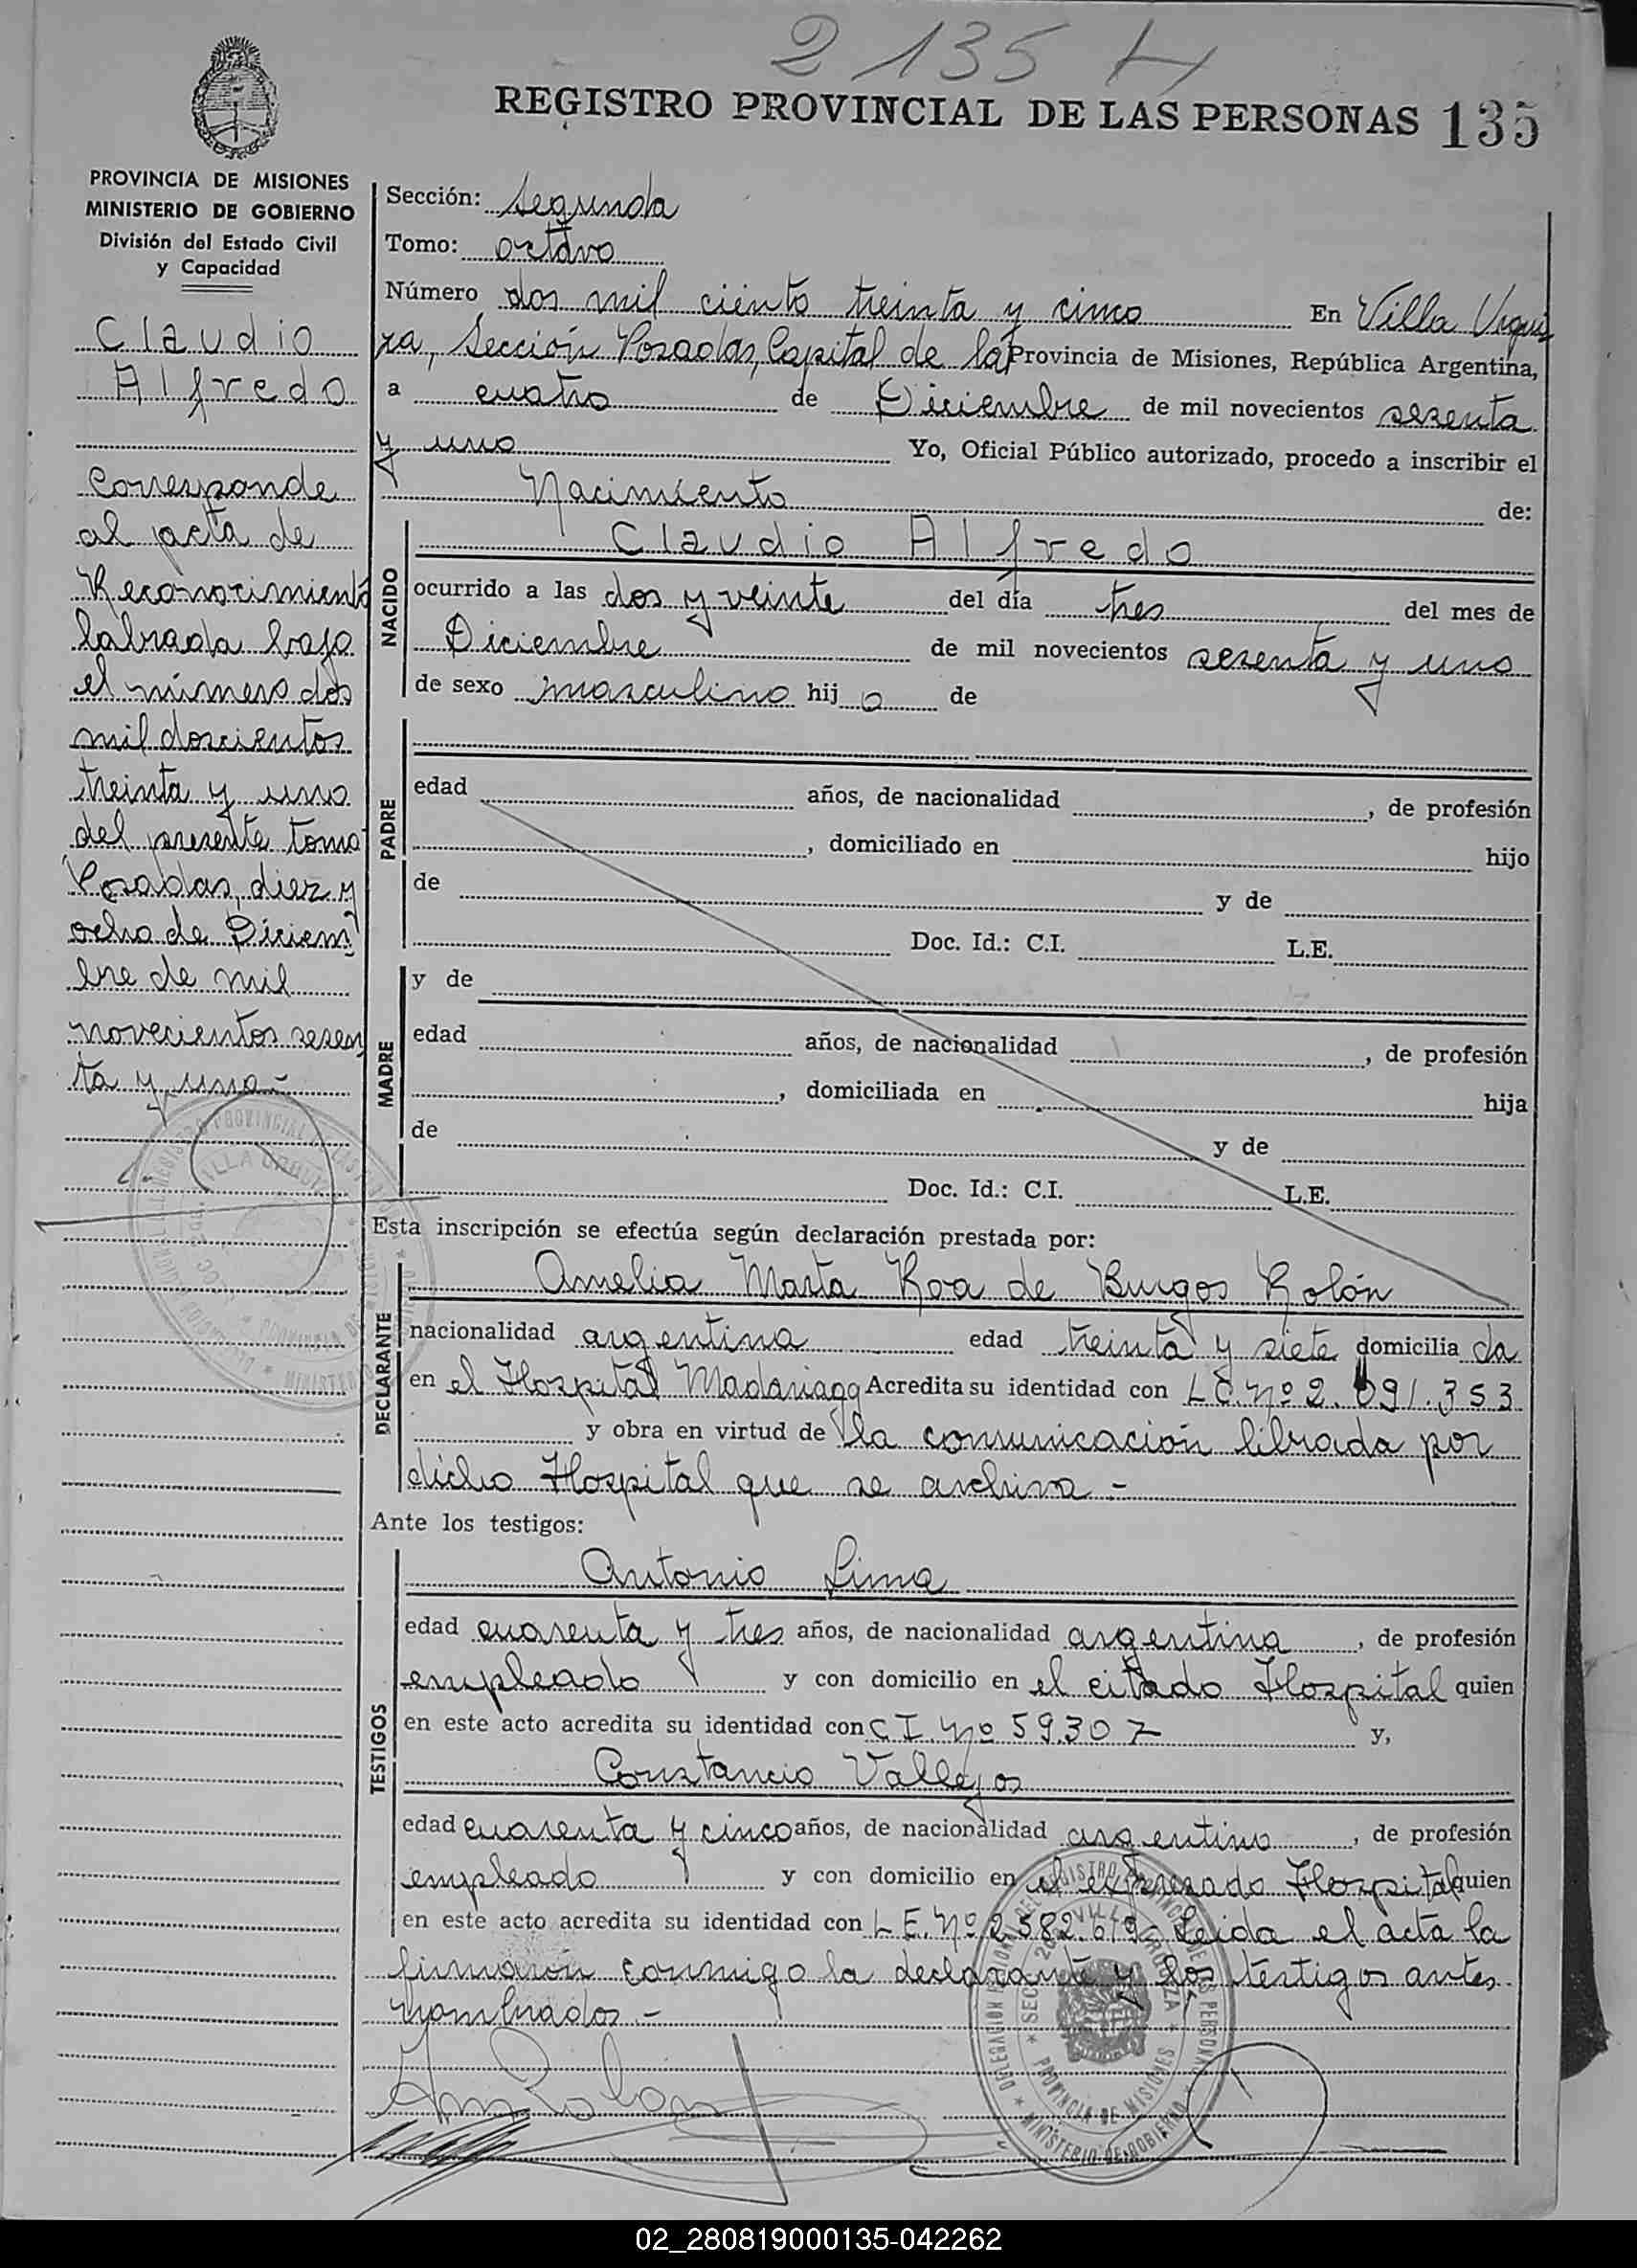 2135 H
REGISTRO PROVINCIAL DE LAS PERSONAS 135
PROVINCIA DE MISIONES
MINISTERIO DE GOBIERNO
División del Estado Civil
y Capacidad
Claudio
Alfredo
Corresponde
al acta de
Reconocimiento
labrada bajo
el número dos
mil doscientos
treinta y uno
del presente tomo
Posadas, diez y
ocho de Diciem
bre de mil
novecientos sesen
ta y uno-
Sección: Segunda
Tomo: octavo
Número dos mil ciento treinta y cinco En Villa Urqui
za, Sección Posadas, Capital de la Provincia de Misiones, República Argentina,
a cuatro de Diciembre de mil novecientos sesenta
y uno Yo, Oficial Público autorizado, procedo a inscribir el
Nacimiento de:
NACIDO
Claudio Alfredo
ocurrido a las dos y veinte del día tres del mes de
Diciembre de mil novecientos sesenta y uno
de sexo masculino hijo de
PADRE
edad años, de nacionalidad , de profesión
, domiciliado en hijo
de y de
Doc. Id.: C.I. L.E.
MADRE
y de
edad años, de nacionalidad , de profesión
, domiciliada en hija
de y de
Doc. Id.: C.I. L.E.
Esta inscripción se efectúa según declaración prestada por:
DECLARANTE
Amelia Marta Roa de Burgos Rolón
nacionalidad argentina edad treinta y siete domiciliada
en el Hospital Madariaga Acredita su identidad con L.C. Nº 2.091.353
y obra en virtud de la comunicación librada por
dicho Hospital que se archiva.-
Ante los testigos:
TESTIGOS
Antonio Lima
edad cuarenta y tres años, de nacionalidad argentina, de profesión
empleado y con domicilio en el citado Hospital quien
en este acto acredita su identidad con C I. Nº 59.307 y,
Constancio Vallejos
edad cuarenta y cinco años, de nacionalidad argentino, de profesión
empleado y con domicilio en el expresado Hospital quien
en este acto acredita su identidad con L.E. Nº 2.582.619- Leida el acta la
firmarón conmigo la declarante y los testigos antes
nombrados.-
02_280819000135-042262